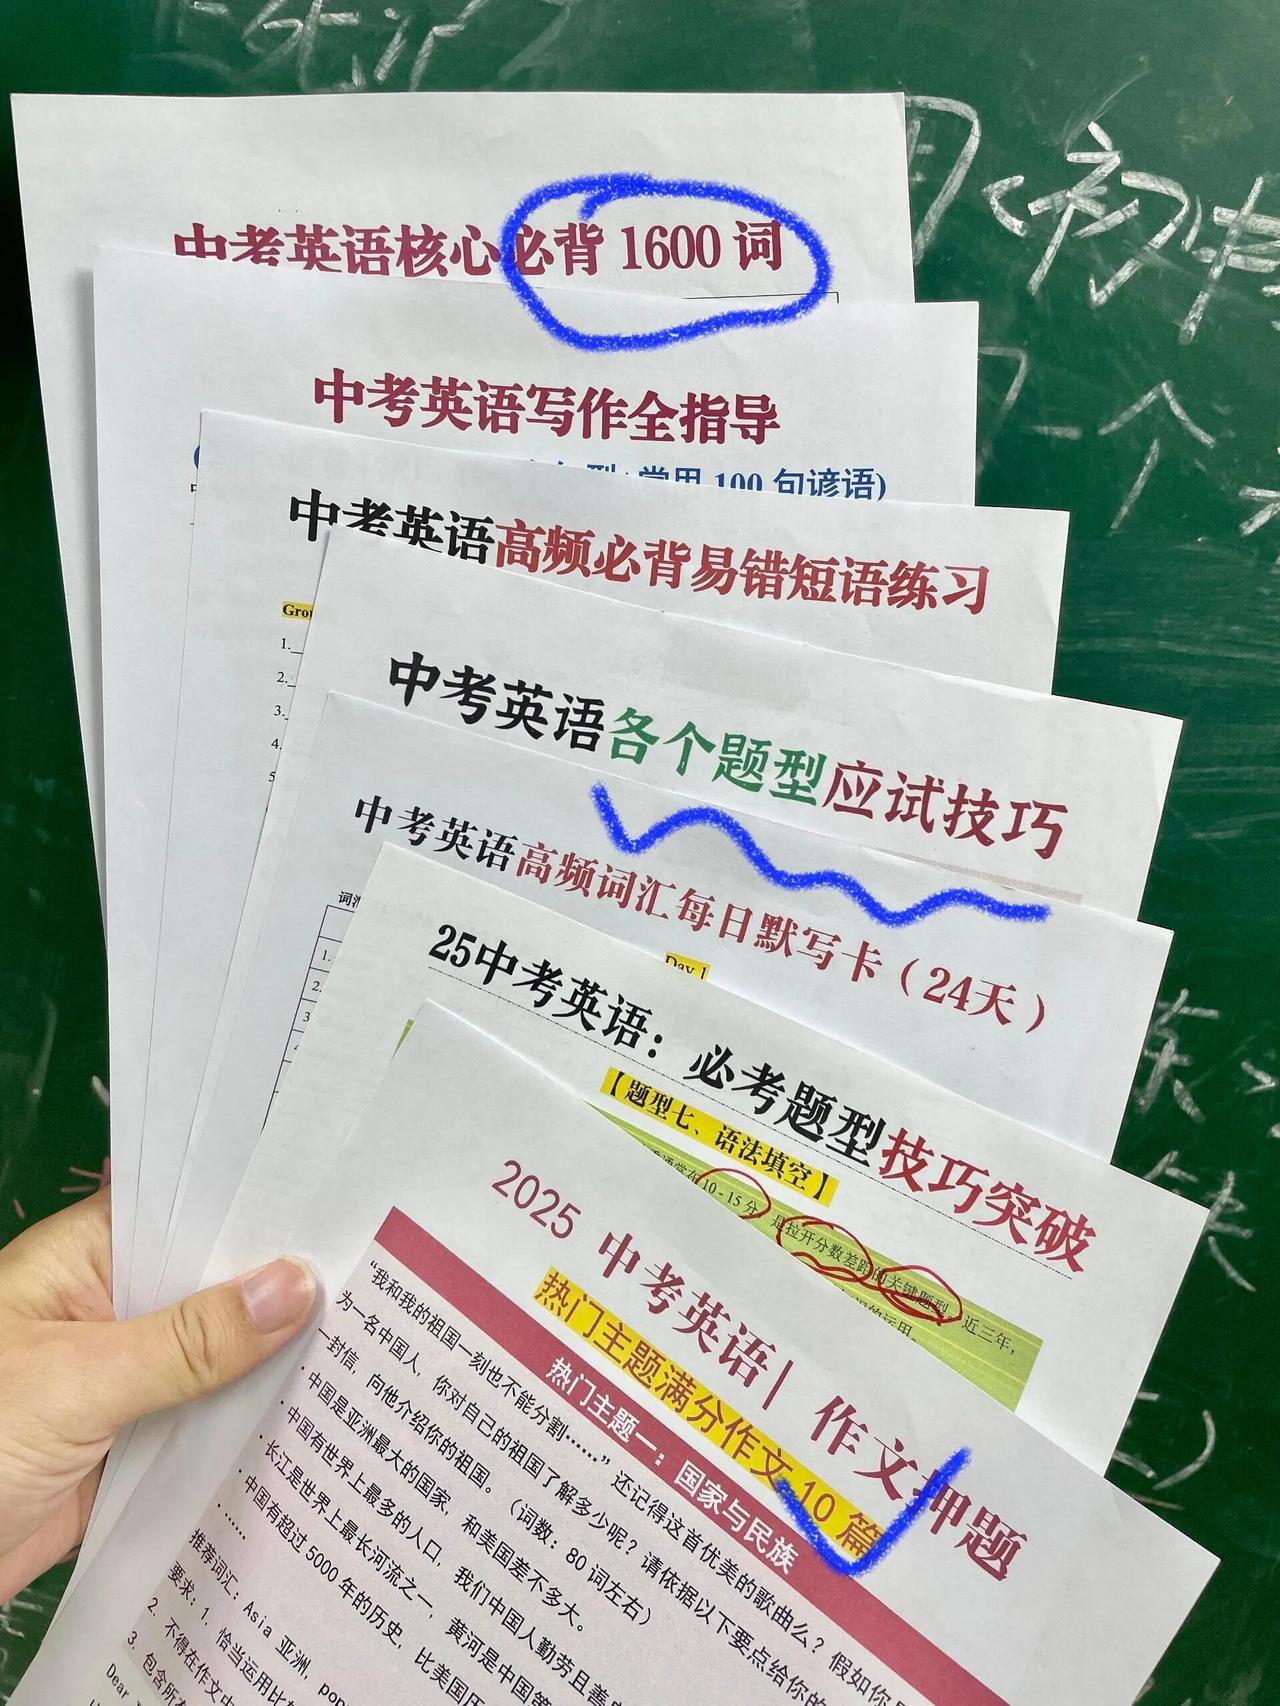 中考英语核心必背 1600 词
中考英语写作全指导
常用 100 句谚语)
中考英语高频必背易错短语练习
1.
2.
3.
4.
5
中考英语各个题型应试技巧
中考英语高频词汇每日默写卡（24天）
Day 1
1.
2.
3
25中考英语：必考题型技巧突破
【题型七、语法填空】
10-15 分，是拉开分数差距的关键题型，近三年，
2025 中考英语| 作文押题
热门主题满分作文 10 篇
热门主题一：国家与民族
“我和我的祖国一刻也不能分割……”还记得这首优美的歌曲么？假如你
为一名中国人，你对自己的祖国了解多少呢？请依据以下要点给你的
一封信，向他介绍你的祖国。（词数：80 词左右）
· 中国是亚洲最大的国家，和美国差不多大。
· 中国有世界上最多的人口，我们中国人勤劳且善
· 长江是世界上最长河流之一，黄河是中国第
· 中国有超过 5000 年的历史，比美国历
……
推荐词汇：Asia 亚洲，pop
要求：1. 恰当运用比
2. 不得在作文中
3. 包含所有
Dear